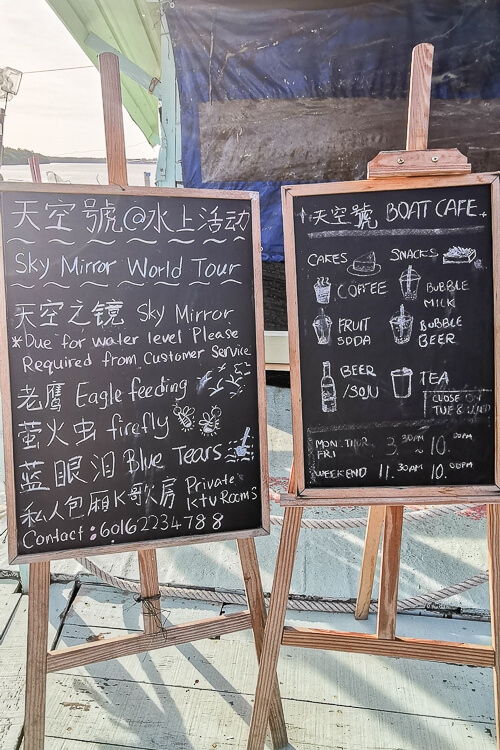 天空號@水上活动
Sky Mirror World Tour
天空之镜 Sky Mirror
*Due for water level Please
Required from Customer Service
老鹰 Eagle feeding
萤火虫 firefly
蓝眼泪 Blue Tears
私人包厢K歌房 Private
KTV Rooms
Contact: 60162234788
天空號 BOAT CAFE
CAKES SNACKS
COFFEE BUBBLE
MILK
FRUIT BUBBLE
SODA BEER
BEER TEA
/SOJU
CLOSE ON
TUE &
MON. THUR. 3.30PM ~ 10.00PM
FRI
WEEKEND 11.30AM 10.00PM